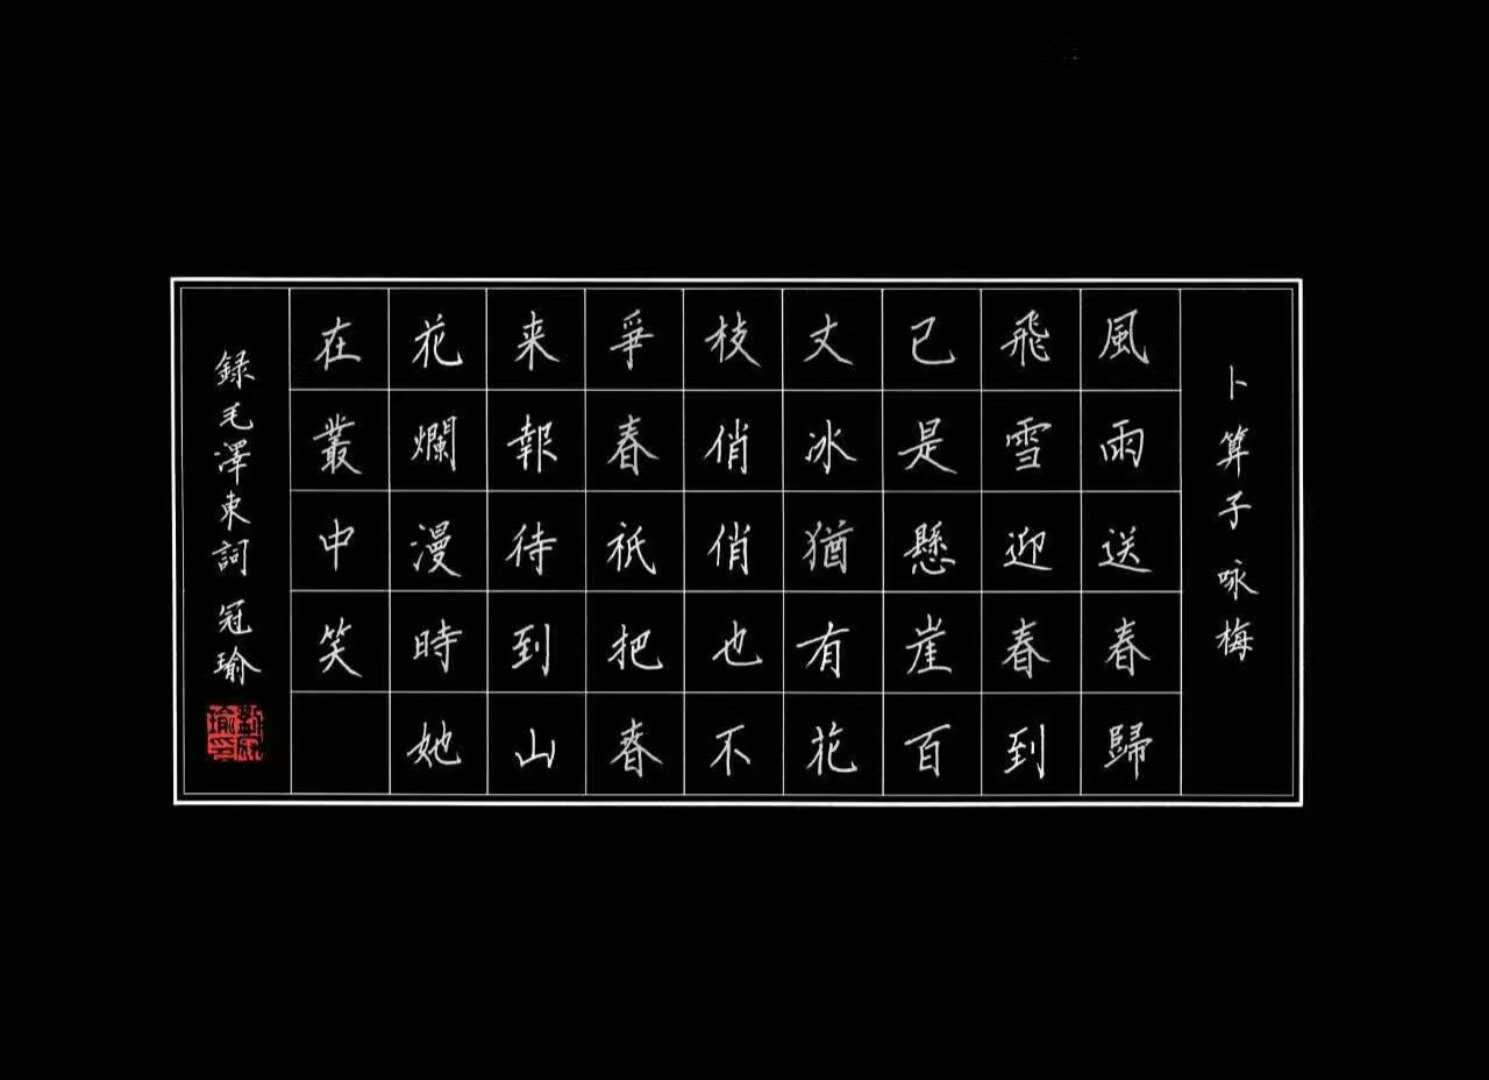 卜算子 咏梅
風雨送春歸
飛雪迎春到
已是懸崖百
丈冰猶有花
枝俏俏也不
爭春祇把春
来報待到山
花爛漫時她
在叢中笑
録毛澤東詞 冠瑜
劉冠瑜印